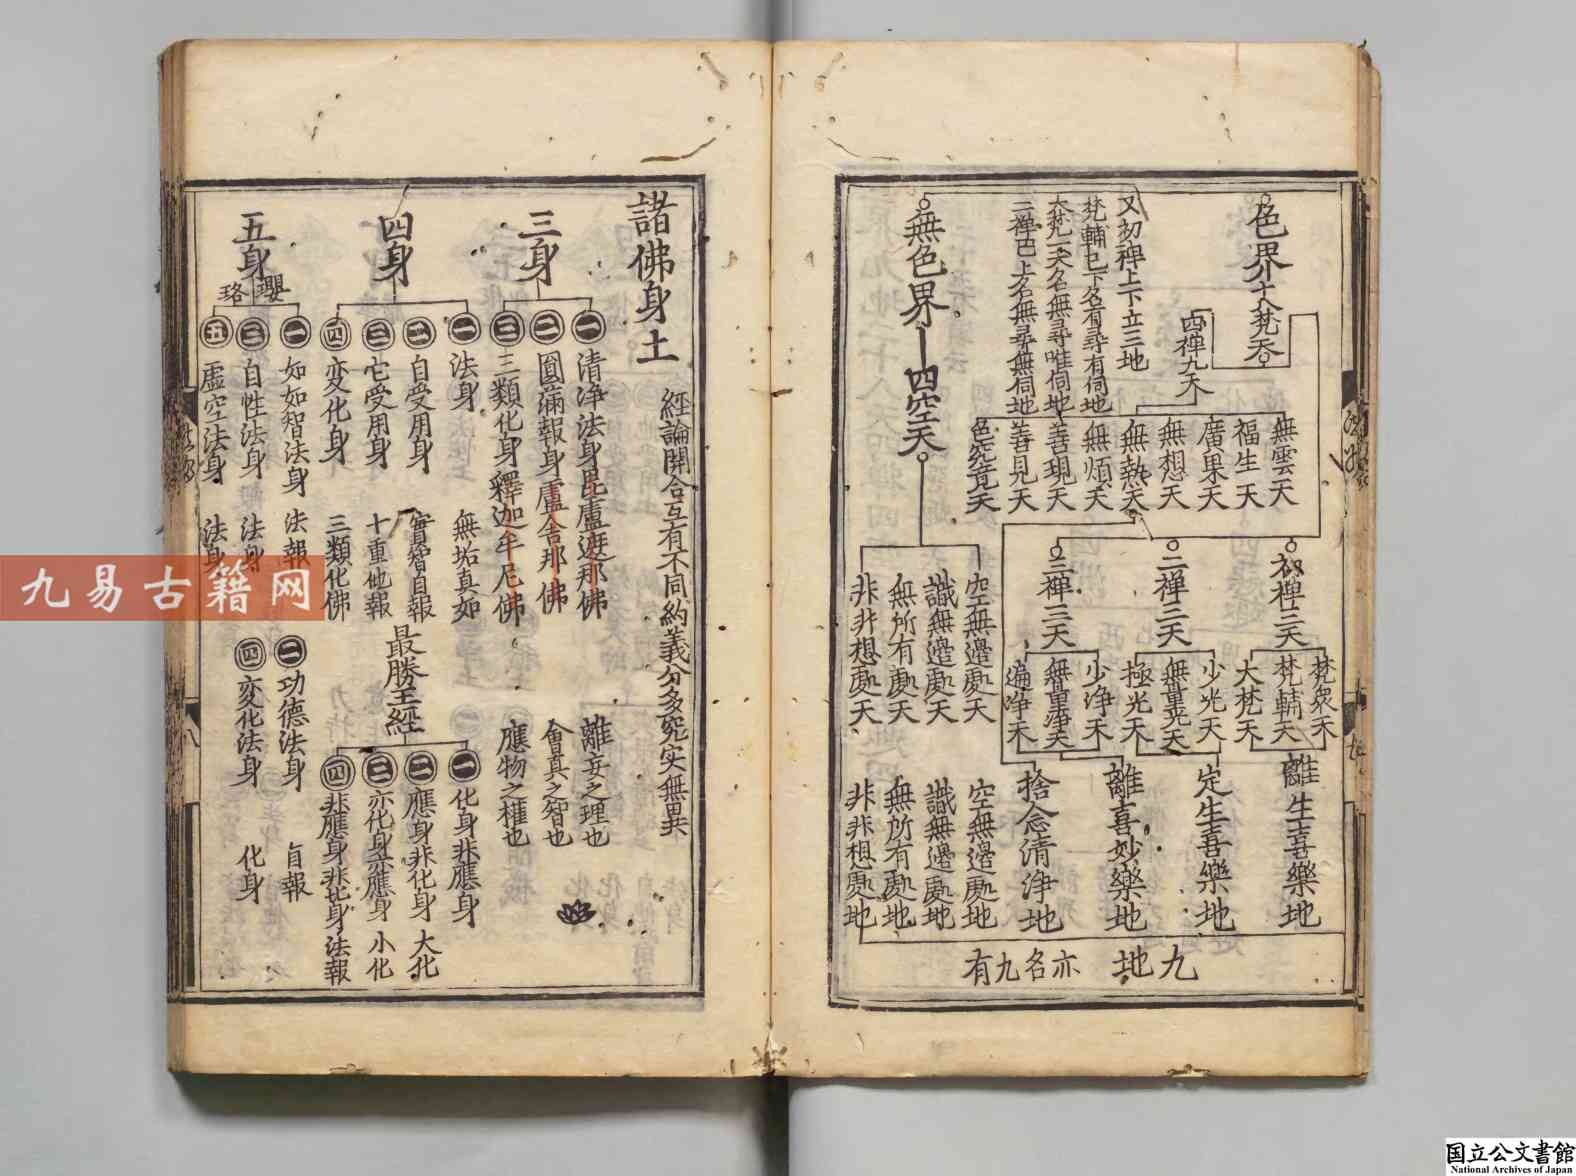 色界十八梵天
四禪九天
無雲天
福生天
廣果天
無想天
無熱天
無煩天
善現天
善見天
色究竟天
又初禪上下立三地
梵輔已下名有尋有伺地
大梵一天名無尋唯伺地
二禪已上名無尋無伺地
初禪三天
梵眾天
梵輔天
大梵天
離生喜樂地
二禪三天
少光天
無量光天
極光天
定生喜樂地
三禪三天
少淨天
無量淨天
遍淨天
離喜妙樂地
捨念清淨地
無色界
四空天
空無邊處天
識無邊處天
無所有處天
非非想處天
空無邊處地
識無邊處地
無所有處地
非非想處地
九地
亦名九有
諸佛身土
經論開合互有不同約義分多究实無異
三身
一 清淨法身毘盧遮那佛 離妄之理也
二 圓滿報身盧舍那佛 會真之智也
三 三類化身釋迦牟尼佛 應物之權也
四身
一 法身 無垢真如
二 自受用身 實智自報
三 它受用身 十重他報
四 变化身 三類化佛
最勝王經
一 化身非應身
二 應身非化身 大化
三 亦化身亦應身 小化
四 非應身非化身 法報
五身
瓔珞
一 如如智法身 法報
二 功德法身 自報
三 自性法身 法身
四 变化法身 化身
五 虛空法身 法身
九易古籍网
国立公文書館
National Archives of Japan